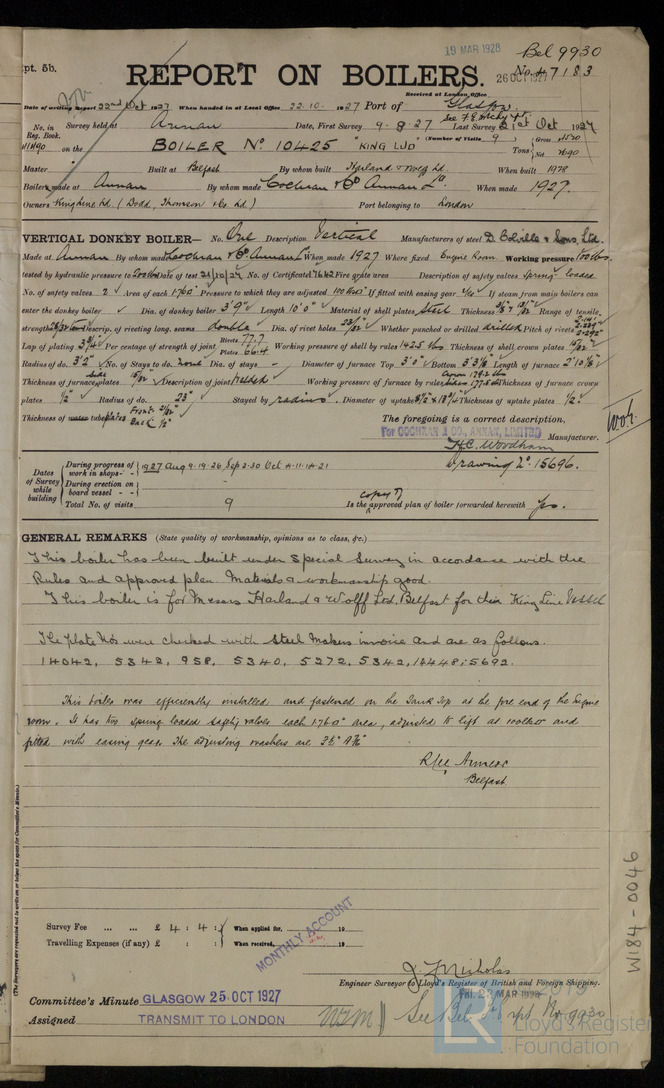 19 MAR 1928
Bel 9930
pt. 5b.
REPORT ON BOILERS.
No. 47183
26 OCT 1927
Received at London Office
Date of writing Report 22nd Oct 1927 When handed in at Local Office 22.10. 1927 Port of Glasgow.
No. in Reg. Book.
Survey held at Annan Date, First Survey 9-8-27 Last Survey 21st Oct 1927
on the BOILER No. 10425 "KING LUD" (Number of Visits 9) Tons Gross Net
Master Built at Belfast By whom built Harland & Wolff Ltd. When built 1928
Boilers made at Annan By whom made Cochran & Co Annan Ld When made 1927.
Owners King Line Ld. (Dodd, Thomson & Co. Ld.) Port belonging to London
VERTICAL DONKEY BOILER— No. One Description Vertical Manufacturers of steel D. Colville & Sons, Ltd.
Made at Annan By whom made Cochran & Co Annan Ld When made 1927 Where fixed Engine Room. Working pressure 100 lbs.
tested by hydraulic pressure to 200 lbs Date of test 21/10/27 No. of Certificate 17642 Fire grate area Description of safety valves Spring loaded
No. of safety valves 2 Area of each 1.760" Pressure to which they are adjusted 100 lbs If fitted with easing gear Yes If steam from main boilers can
enter the donkey boiler Dia. of donkey boiler 3'9" Length 10'0" Material of shell plates Steel Thickness Range of tensile
strength Descrip. of riveting long. seams double Dia. of rivet holes 23/32" Whether punched or drilled drilled Pitch of rivets
Lap of plating 3 3/4" Per centage of strength of joint Rivets 77.7 Plates 66.4 Working pressure of shell by rules 142.5 lbs Thickness of shell crown plates 15/32"
Radius of do. 3'2" No. of Stays to do. none Dia. of stays - Diameter of furnace Top 3'0" Bottom Length of furnace
Thickness of furnace side plates Description of joint Welded Working pressure of furnace by rules Thickness of furnace crown
plates 1/2" Radius of do. 23" Stayed by radius. Diameter of uptake Thickness of uptake plates 1/2"
Thickness of water tubes plates Front 21/32" Back 1/2"
The foregoing is a correct description.
For COCHRAN & CO., ANNAN, LIMITED
H.C. Woodham Manufacturer.
Drawing No. 15696.
Dates of Survey while building
During progress of work in shops - - 1927 Aug 9-19-26 Sep 2-30 Oct 4-11-14-21
During erection on board vessel - -
Total No. of visits 9
Is the copy of approved plan of boiler forwarded herewith Yes.
GENERAL REMARKS (State quality of workmanship, opinions as to class, &c.)
This boiler has been built under Special Survey in accordance with the
Rules and approved plan. Materials & workmanship good.
This boiler is for Messrs Harland & Wolff Ltd, Belfast for their King Line Vessel
The plate Nos were checked with Steel Makers invoice and are as follows.
14042, 5342, 958, 5340, 5272, 5342, 12448; 5692.
This boiler was efficiently installed and fastened on the Tank Top at the fore end of the Engine
room. It has two spring loaded safety valves each 1.760" area, adjusted to lift at 100 lbs and
fitted with easing gear. The adjusting washers are
Belfast.
(The Surveyors are requested not to write on or below the space for Committee's Minute.)
W184-0046
Survey Fee ... ... £ 4 : 4 : When applied for, 19
Travelling Expenses (if any) £ : : When received, 19
MONTHLY ACCOUNT
J. Nicholas
Engineer Surveyor to Lloyd's Register of British and Foreign Shipping.
Committee's Minute GLASGOW 25 OCT 1927
FRI. 23 MAR 1928
Assigned TRANSMIT TO LONDON
See Bel. rpt No 9930
LR
Lloyd's Register
Foundation